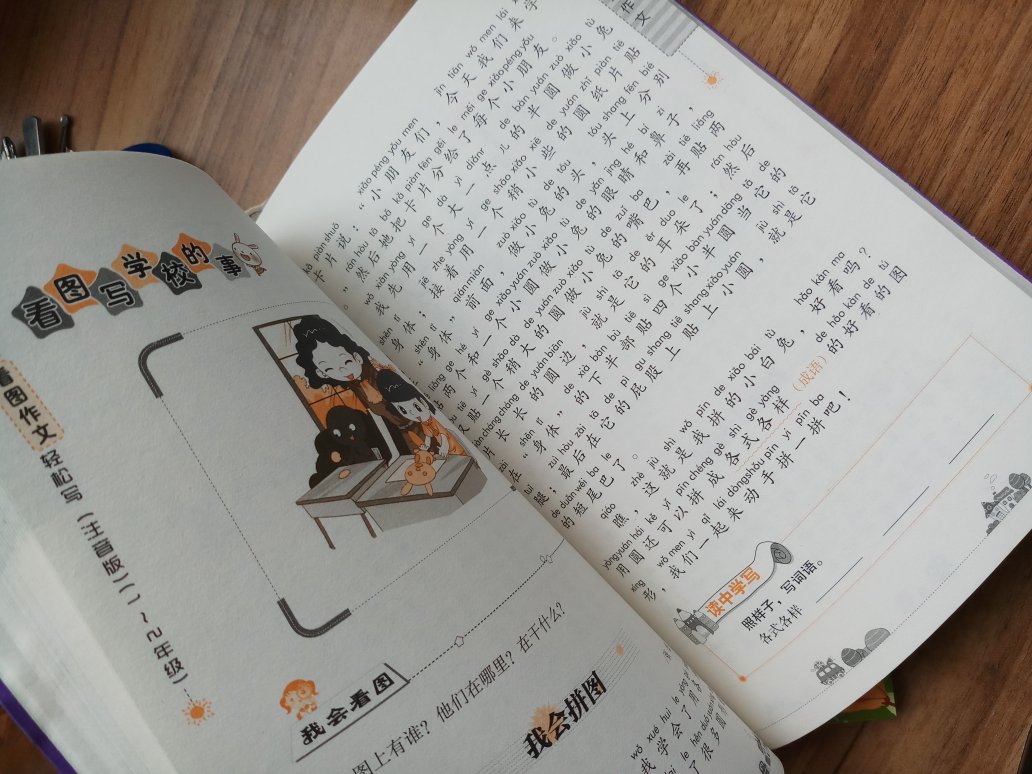 看图作文
轻松写（注音版）（1～2年级）
看图写学校的事
我会看图
图上有谁？他们在哪里？在干什么？
我会拼图
wǒ xué huì le yòng
我学会了用
作文
kǎ piàn shuō xiǎo péng yǒu men jīn tiān wǒ men lái
卡片说：“小朋友们，今天我们来学
rán hòu tā bǎ kǎ piàn fēn gěi le měi ge xiǎo péng yǒu
”然后她把卡片分给了每个小朋友。
wǒ xiān yòng yí ge dà yì diǎnr de bàn yuán zuò xiǎo tù
我先用一个大一点儿的半圆做小兔
shēn tǐ jiē zhe yòng yí ge shāo xiǎo xiē de yuán zhǐ piàn tiē
身体；接着用一个稍小些的圆纸片贴
shēn tǐ qián miàn zuò xiǎo tù de tóu tóu shang fēn bié
“身体”前面，做小兔的头，头上分别
liǎng ge hé yí ge xiǎo yuán zuò xiǎo tù de yǎn jing hé bí zi
贴两个和一个小圆做小兔的眼睛和鼻子，
tiē yí gè shāo dà de yuán zuò xiǎo tù de zuǐ ba zài tiē liǎng
贴一个稍大的圆做小兔的嘴巴，再贴两
cháng cháng de yuán biān jiù shì tā de ěr duo le rán hòu
片长长的圆边，就是它的耳朵了；然后
zài shēn tǐ de xià bàn bù tiē sì ge xiǎo bàn yuán dāng tā de
在“身体”的下半部贴四个小半圆当它的
tuǐ zuì hòu zài tā de pì gu shang tiē shang xiǎo yuán jiù shì tā
腿；最后在它的屁股上贴上小圆，就是它
de duǎn wěi ba le
的短尾巴了。
qiáo zhè jiù shì wǒ pīn de xiǎo bái tù hǎo kàn ma
瞧，这就是我拼的小白兔，好看吗？
yòng yuán hái kě yǐ pīn chéng gè shì gè yàng de hǎo kàn de tú
用圆还可以拼成各式各样（成语）的好看的图
xíng wǒ men yì qǐ lái dòng shǒu pīn yì pīn ba
形，我们一起来动手拼一拼吧！
读中学写
照样子，写词语。
各式各样